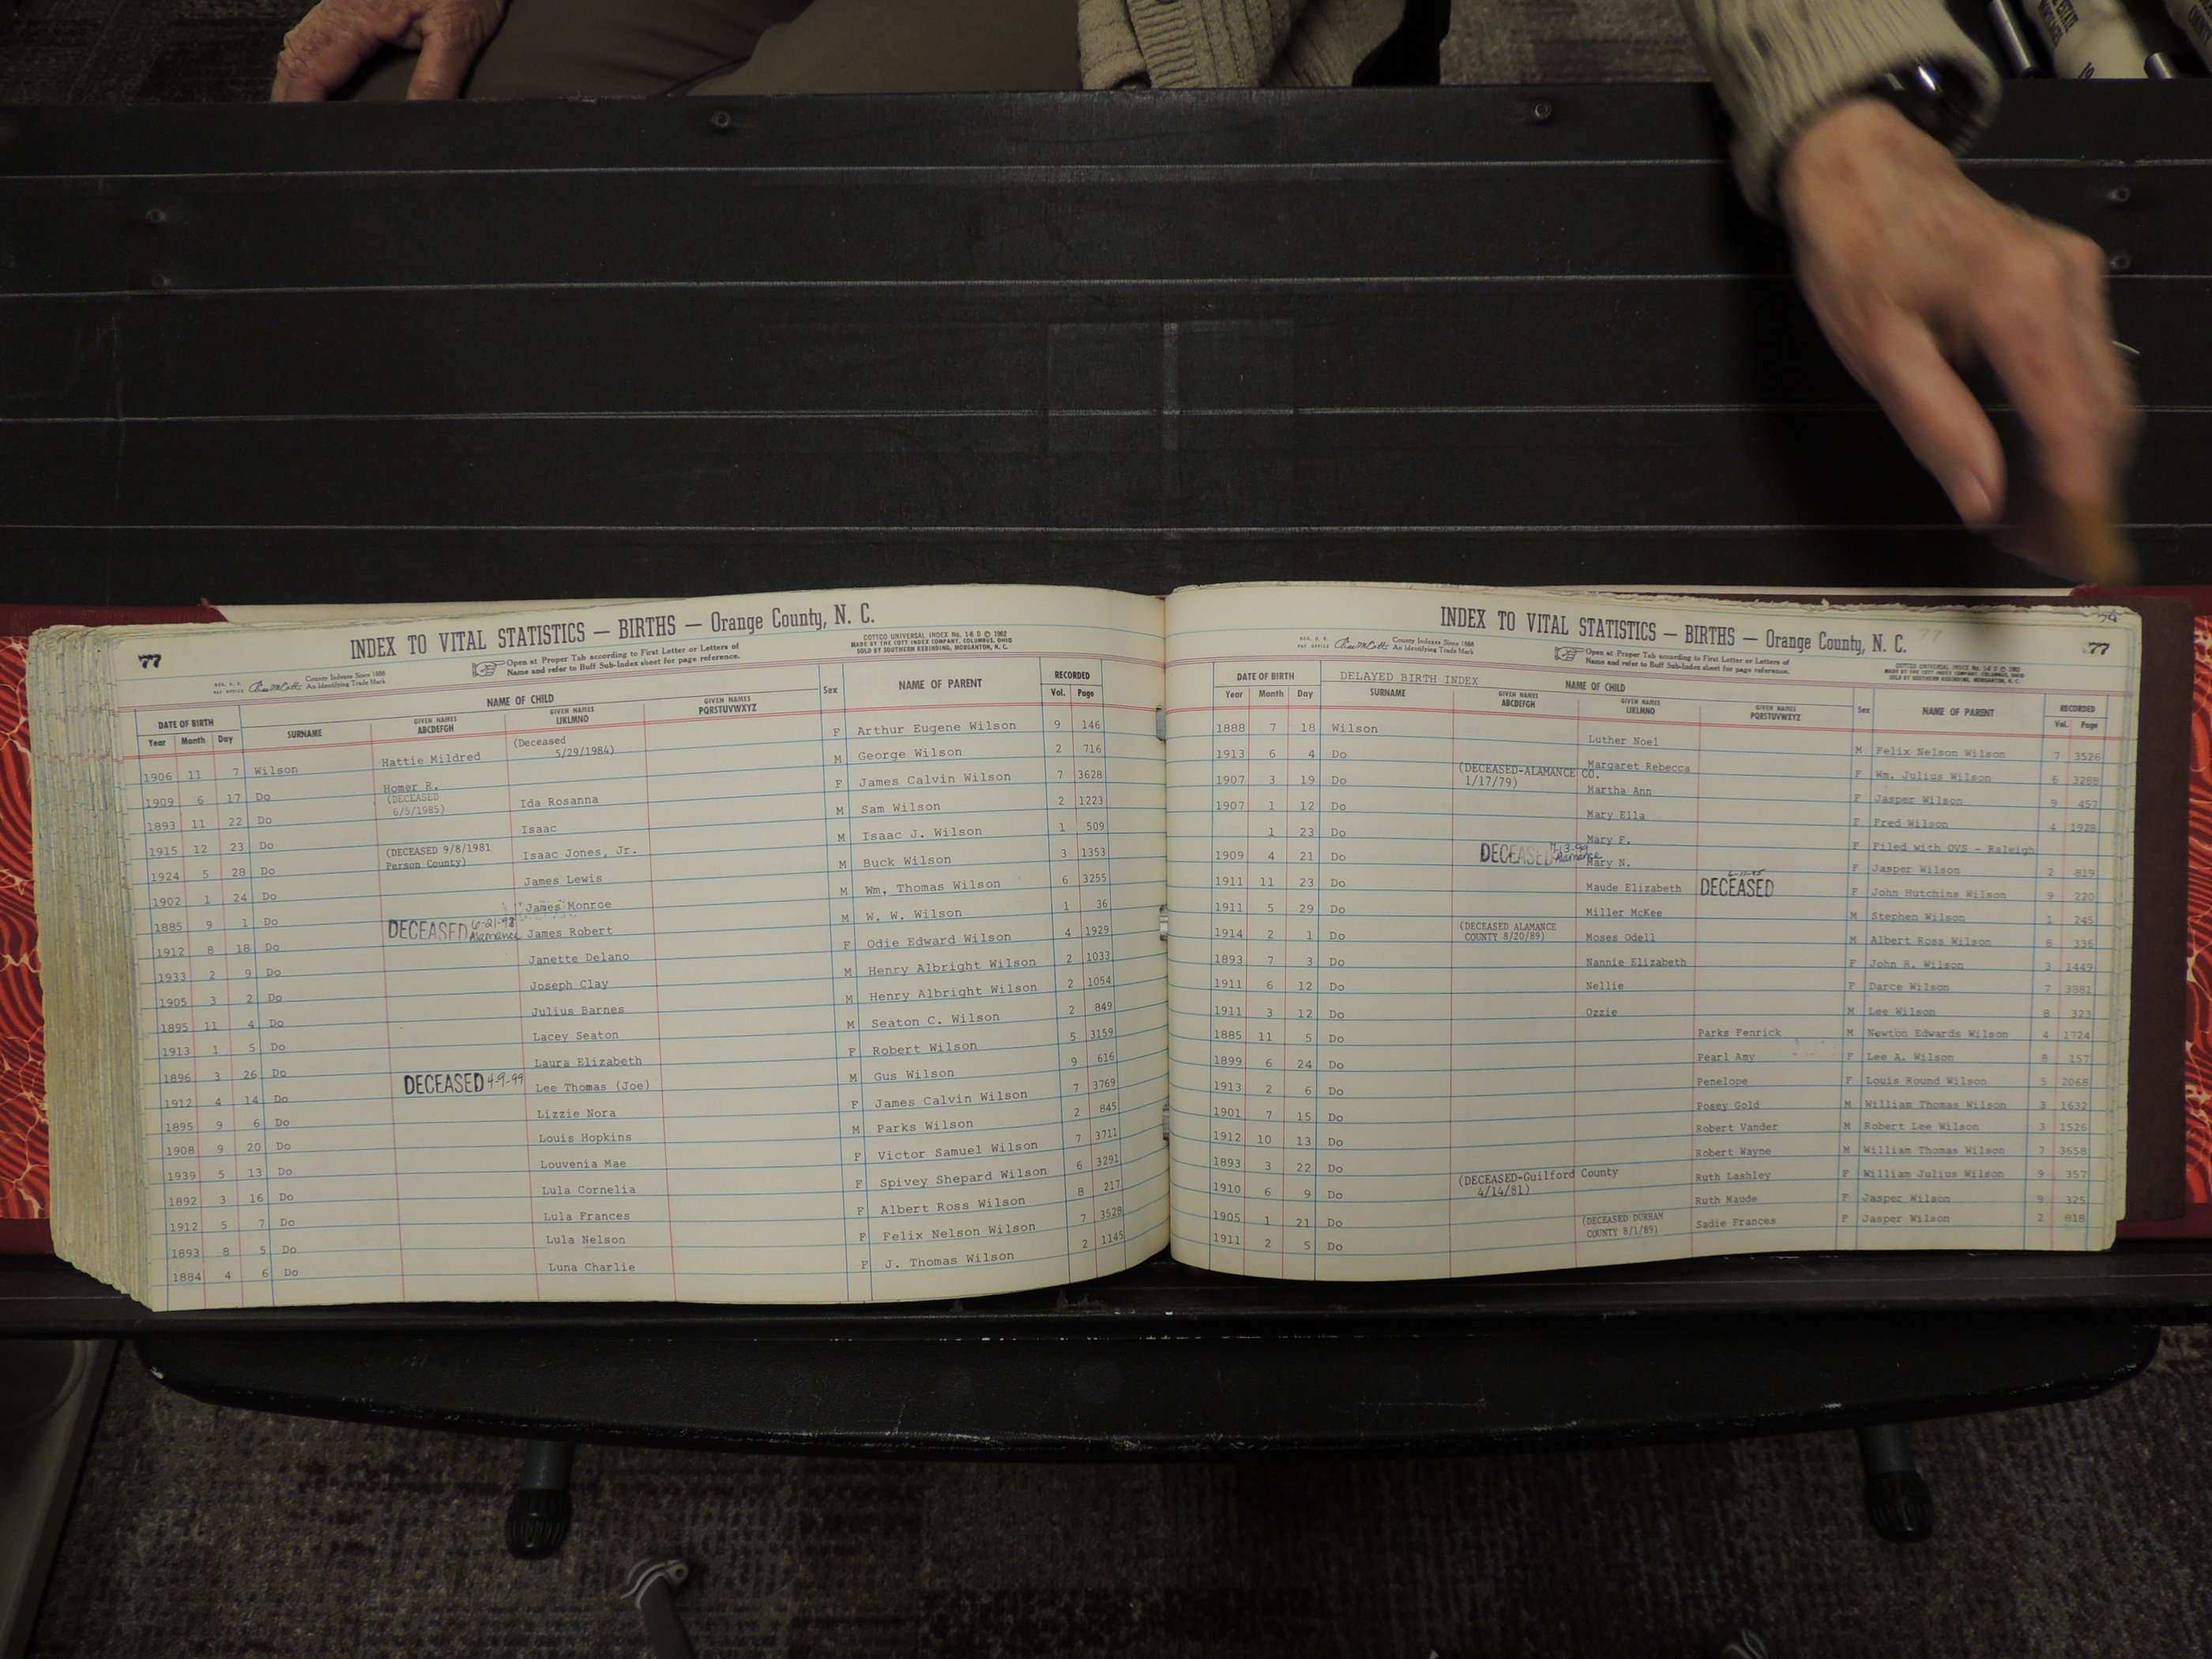 77
INDEX TO VITAL STATISTICS — BIRTHS — Orange County, N. C.
REG. U. S. PAT OFFICE County Indexes Since 1888 An Identifying Trade Mark
Open at Proper Tab according to First Letter or Letters of
Name and refer to Buff Sub-Index sheet for page reference.
COTTCO UNIVERSAL INDEX No. 1-8 D © 1962
MADE BY THE COTT INDEX COMPANY, COLUMBUS, OHIO
SOLD BY SOUTHERN REBINDING, MORGANTON, N. C.
DATE OF BIRTH NAME OF CHILD Sex NAME OF PARENT RECORDED
Year Month Day SURNAME GIVEN NAMES ABCDEFGH GIVEN NAMES IJKLMNO GIVEN NAMES PQRSTUVWXYZ Vol. Page
1906 11 7 Wilson Hattie Mildred (Deceased 5/29/1984) F Arthur Eugene Wilson 9 146
1909 6 17 Do Homer R. (DECEASED 6/5/1985) M George Wilson 2 716
1893 11 22 Do Ida Rosanna F James Calvin Wilson 7 3628
1915 12 23 Do Isaac M Sam Wilson 2 1223
1924 5 28 Do (DECEASED 9/8/1981 Person County) Isaac Jones, Jr. M Isaac J. Wilson 1 509
1902 1 24 Do James Lewis M Buck Wilson 3 1353
1885 9 1 Do James Monroe M Wm, Thomas Wilson 6 3255
1912 8 18 Do DECEASED 6-21-98 Alamance James Robert M W. W. Wilson 1 36
1933 2 9 Do Janette Delano F Odie Edward Wilson 4 1929
1905 3 2 Do Joseph Clay M Henry Albright Wilson 2 1033
1895 11 4 Do Julius Barnes M Henry Albright Wilson 2 1054
1913 1 5 Do Lacey Seaton M Seaton C. Wilson 2 849
1896 3 26 Do Laura Elizabeth F Robert Wilson 5 3159
1912 4 14 Do DECEASED 4-9-99 Lee Thomas (Joe) M Gus Wilson 9 616
1895 9 6 Do Lizzie Nora F James Calvin Wilson 7 3769
1908 9 20 Do Louis Hopkins M Parks Wilson 2 845
1939 5 13 Do Louvenia Mae F Victor Samuel Wilson 7 3711
1892 3 16 Do Lula Cornelia F Spivey Shepard Wilson 6 3291
1912 5 7 Do Lula Frances F Albert Ross Wilson 8 217
1893 8 5 Do Lula Nelson F Felix Nelson Wilson 7 3528
1884 4 6 Do Luna Charlie F J. Thomas Wilson 2 1145
INDEX TO VITAL STATISTICS — BIRTHS — Orange County, N. C.
77
REG. U. S. PAT OFFICE County Indexes Since 1888 An Identifying Trade Mark
Open at Proper Tab according to First Letter or Letters of
Name and refer to Buff Sub-Index sheet for page reference.
COTTCO UNIVERSAL INDEX No. 1-8 D © 1962
MADE BY THE COTT INDEX COMPANY, COLUMBUS, OHIO
SOLD BY SOUTHERN REBINDING, MORGANTON, N. C.
DATE OF BIRTH DELAYED BIRTH INDEX NAME OF CHILD Sex NAME OF PARENT RECORDED
Year Month Day SURNAME GIVEN NAMES ABCDEFGH GIVEN NAMES IJKLMNO GIVEN NAMES PQRSTUVWXYZ Vol. Page
1888 7 18 Wilson Luther Noel M Felix Nelson Wilson 7 3526
1913 6 4 Do Margaret Rebecca F Wm. Julius Wilson 6 3288
1907 3 19 Do (DECEASED-ALAMANCE CO. 1/17/79) Martha Ann F Jasper Wilson 9 457
1907 1 12 Do Mary Ella F Fred Wilson 4 1928
1 23 Do Mary F. F Filed with OVS - Raleigh
1909 4 21 Do DECEASED Alamance Mary N. F Jasper Wilson 2 819
1911 11 23 Do Maude Elizabeth DECEASED F John Hutchins Wilson 9 220
1911 5 29 Do Miller McKee M Stephen Wilson 1 245
1914 2 1 Do (DECEASED ALAMANCE COUNTY 8/20/89) Moses Odell M Albert Ross Wilson 8 336
1893 7 3 Do Nannie Elizabeth F John R. Wilson 3 1449
1911 6 12 Do Nellie F Darce Wilson 7 3881
1911 3 12 Do Ozzie M Lee Wilson 8 323
1885 11 5 Do Parks Fenrick M Newton Edwards Wilson 4 1724
1899 6 24 Do Pearl Amy F Lee A. Wilson 8 157
1913 2 6 Do Penelope F Louis Round Wilson 5 2068
1901 7 15 Do Posey Gold M William Thomas Wilson 3 1632
1912 10 13 Do Robert Vander M Robert Lee Wilson 3 1526
1893 3 22 Do Robert Wayne M William Thomas Wilson 7 3658
1910 6 9 Do (DECEASED-Guilford County 4/14/81) Ruth Lashley F William Julius Wilson 9 357
1905 1 21 Do Ruth Maude F Jasper Wilson 9 325
1911 2 5 Do (DECEASED DURHAM COUNTY 8/1/89) Sadie Frances F Jasper Wilson 2 818